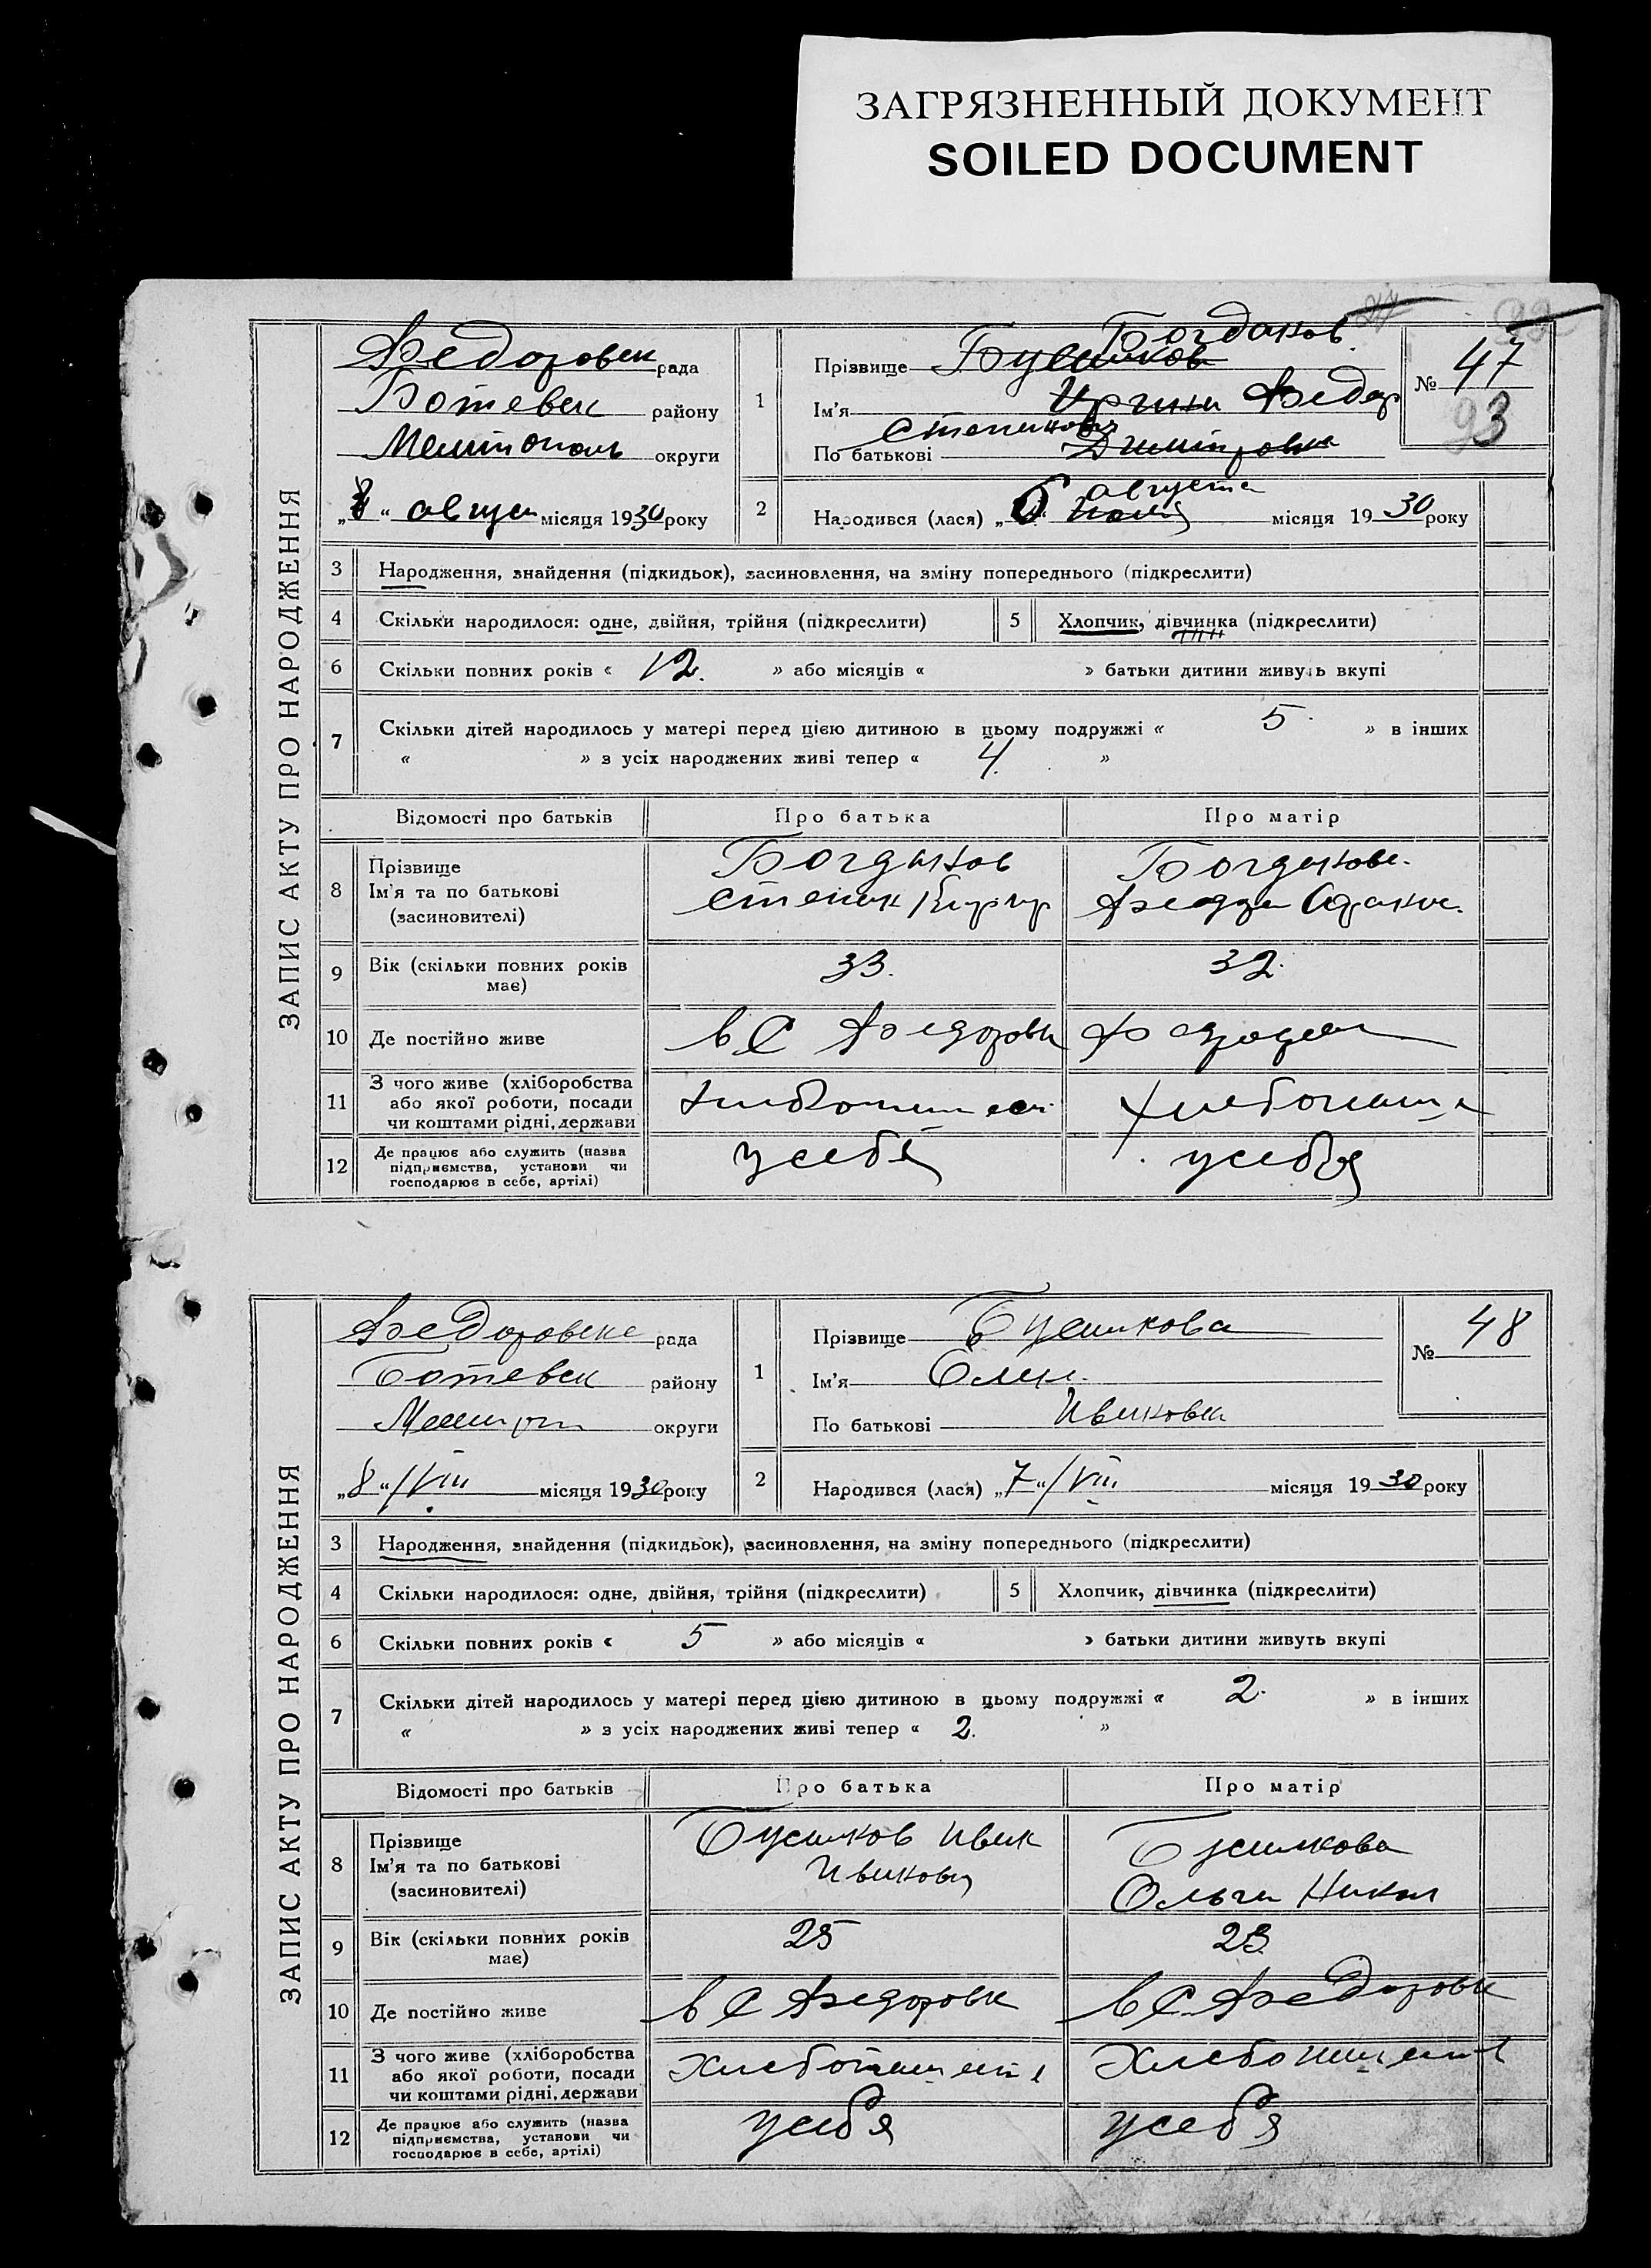 ЗАГРЯЗНЕННЫЙ ДОКУМЕНТ
SOILED DOCUMENT
ЗАПИС АКТУ ПРО НАРОДЖЕННЯ
Федоровск рада
Ботевск району
Мелитополь округи
„8“ август місяця 1930 року
1
Богданов
Прізвище Бусшков
Ім'я Федор
Степанович
По батькові Дмитровна
№ 47
93
2
августа
Народився (лася) „6“ июля місяця 1930 року
3 Народження, знайдення (підкидьок), засиновлення, на зміну попереднього (підкреслити)
4 Скільки народилося: одне, двійня, трійня (підкреслити) 5 Хлопчик, дівчинка (підкреслити)
6 Скільки повних років « 12. » або місяців « » батьки дитини живуть вкупі
7 Скільки дітей народилось у матері перед цією дитиною в цьому подружжі « 5 » в інших
« » з усіх народжених живі тепер « 4. »
Відомості про батьків Про батька Про матір
8 Прізвище Богданов Богданова
Ім'я та по батькові Степан
(засиновителі)
9 Вік (скільки повних років має) 33. 32.
10 Де постійно живе в С Федоровк
11 З чого живе (хліборобства
або якої роботи, посади
чи коштами рідні, держави
12 Де працює або служить (назва
підприємства, установи чи
господарює в себе, артілі)
у себя у себя
ЗАПИС АКТУ ПРО НАРОДЖЕННЯ
Федоровска рада
Ботевск району
округи
„8“/VIII місяця 1930 року
1
Прізвище Бусшкова
Ім'я
По батькові Ивановна
№ 48
2 Народився (лася) „7“/VIII місяця 1930 року
3 Народження, знайдення (підкидьок), засиновлення, на зміну попереднього (підкреслити)
4 Скільки народилося: одне, двійня, трійня (підкреслити) 5 Хлопчик, дівчинка (підкреслити)
6 Скільки повних років « 5 » або місяців « » батьки дитини живуть вкупі
7 Скільки дітей народилось у матері перед цією дитиною в цьому подружжі « 2. » в інших
« » з усіх народжених живі тепер « 2. »
Відомості про батьків Про батька Про матір
8 Прізвище Иван
Ім'я та по батькові Иванович
(засиновителі) Ольга Никол
9 Вік (скільки повних років має) 25 23
10 Де постійно живе в С Федоровк в С Федоровк
11 З чого живе (хліборобства
або якої роботи, посади
чи коштами рідні, держави
Хлебопашест Хлебопашест
12 Де працює або служить (назва
підприємства, установи чи
господарює в себе, артілі)
у себя у себя